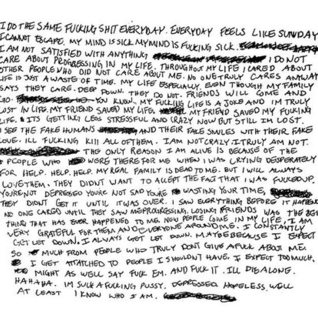 I DO THE SAME FUCKING SHIT EVERYDAY. EVERYDAY FEELS LIKE SUNDAY
I CANNOT ESCAPE. MY MIND IS SICK. MY MIND IS FUCKING SICK.
I AM NOT SATISFIED WITH ANYTHING I DO NOT
CARE ABOUT PROGRESSING IN MY LIFE. THROUGHOUT MY LIFE I CARED ABOUT
OTHER PEOPLE WHO DID NOT CARE ABOUT ME. NO ONE TRULY CARES ANYWAY
LIFE IS JUST A WASTE OF TIME. MY LIFE ESPECIALLY. EVEN THOUGH MY FAMILY
SAYS THEY CARE. DEEP DOWN, THEY DO NOT. FRIENDS WILL COME AND
YOU KNOW, MY FUCKING LIFE IS A JOKE AND IM TRULY
LOST IN LIFE. MY FRIEND SAVED MY LIFE. MY FRIEND SAVED MY FUCKING
LIFE. & ITS GETTING LESS STRESSFUL AND CRAZY NOW BUT STILL IM LOST.
I SEE THE FAKE HUMANS AND THEIR FAKE SMILES WITH THEIR FAKE
LOVE. ILL FUCKING KILL ALL OF THEM. I AM NOT CRAZY. I TRULY AM NOT.
THE ONLY REASON I AM ALIVE IS BECAUSE OF THE
PEOPLE WHO WERE THERE FOR ME WHEN I WAS CRYING DESPERATELY
FOR HELP. HELP. HELP. MY REAL FAMILY IS DEAD TO ME. BUT I WILL ALWAYS
LOVE THEM. THEY DIDN'T WANT TO ACCEPT THE FACT THAT I WAS FUCKED UP.
YOUR NOT DEPRESSED YOUR NOT SAD YOUR WASTING YOUR TIME,
THEY DIDN'T GET IT UNTIL IT WAS OVER. I SAW EVERYTHING BEFORE IT HAPPEN
NO ONE CARED UNTIL THEY SAW ME PROGRESSING. LOSING FRIENDS WAS THE BEST
THING THAT HAS EVER HAPPENED TO ME. NOW PEOPLE CARE IN MY LIFE, I AM
VERY GRATEFUL FOR THEM AND EVERYONE AROUND ME. I CONSTANTLY
GET LET DOWN. I ALWAYS GET LET DOWN. MAYBE BECAUSE I EXPECT
SO MUCH FROM PEOPLE WHO TRULY DON'T GIVE A FUCK ABOUT ME.
I GET ATTACHED TO PEOPLE I SHOULDN'T HAVE. I EXPECT TOO MUCH.
MIGHT AS WELL SAY FUCK EM. AND FUCK IT. ILL DIE ALONE.
HAHAHA. IM SUCH A FUCKING PUSSY. DEPRESSED. HOPELESS. WELL
AT LEAST I KNOW WHO I AM.